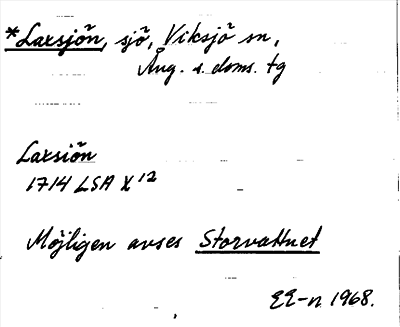 *Laxsjön, sjö, Viksjö sn,
Ång. s. doms. tg
Laxsiön
1714 LSA X¹²
Möjligen avses Storvattnet
EE-n. 1968.